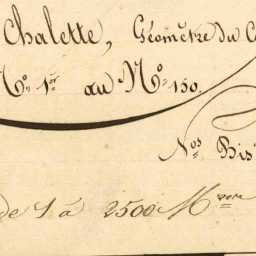 Chalette, Géomètre du C
N.o 1.er au N.o 150.
N.os Bis
de 1 à 2500 M